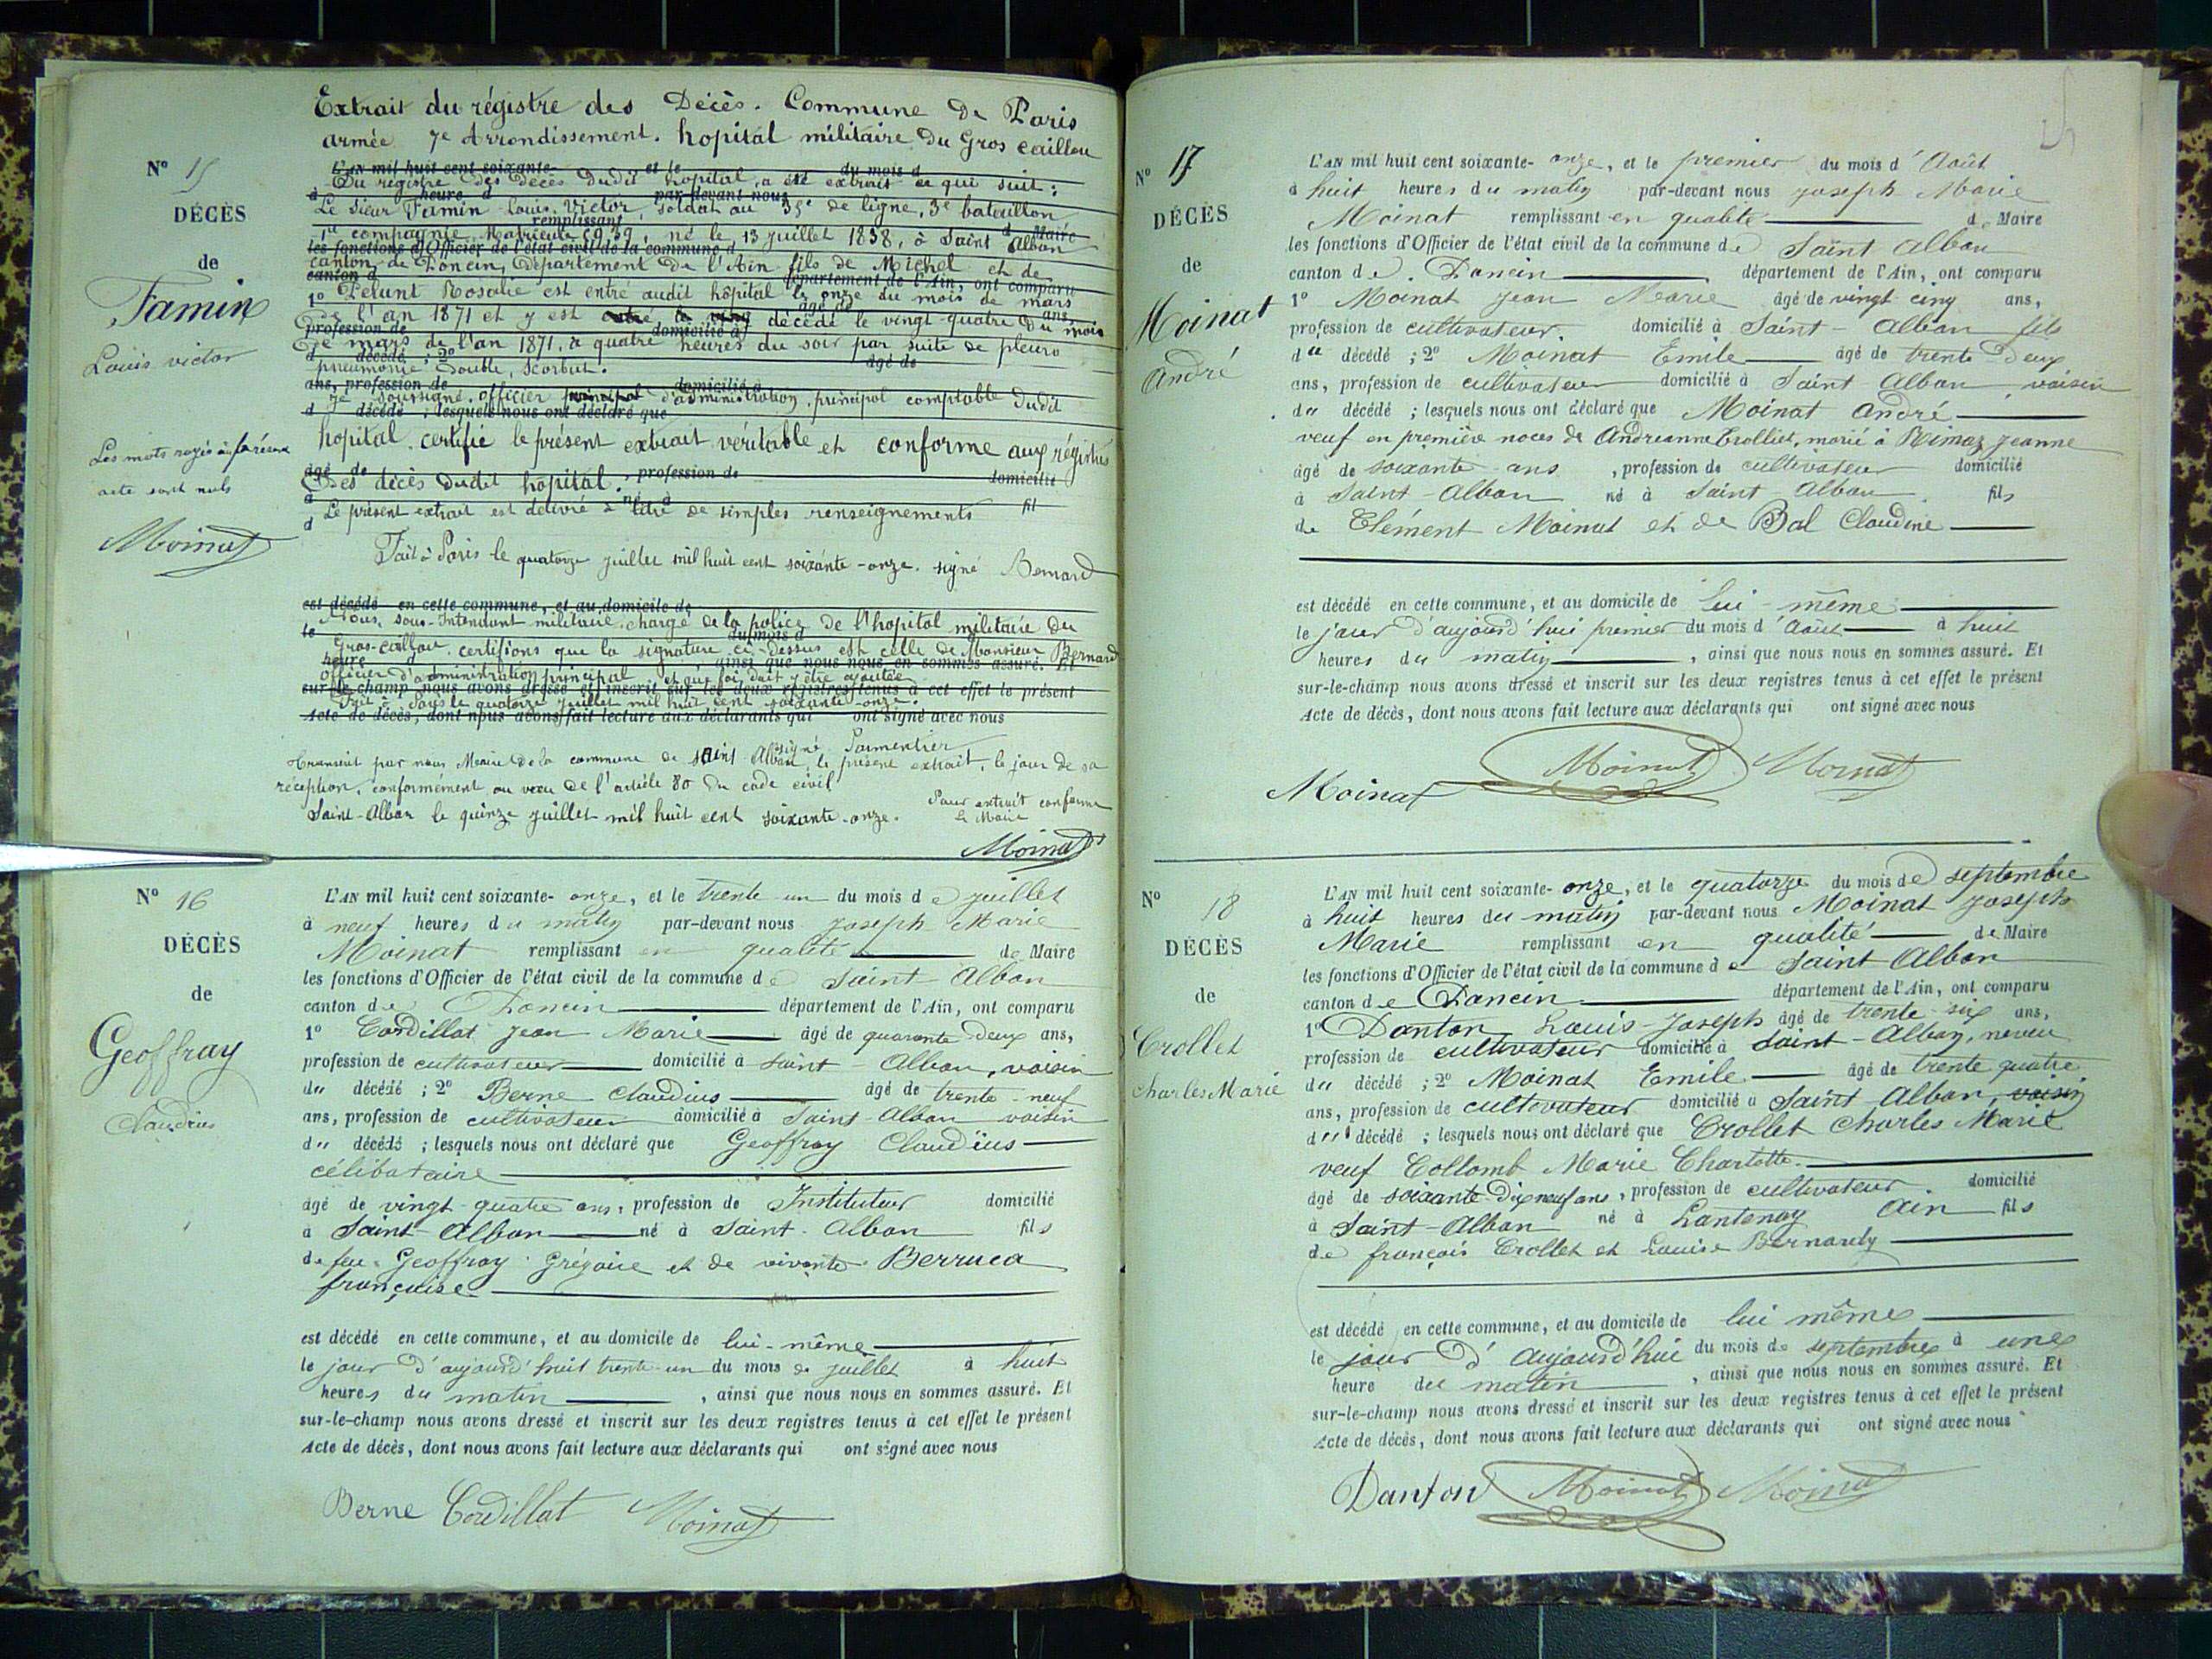 Extrait du régistre des Décès. Commune De Paris
armée 7e Arrondissement. hopital militaire Du Gros caillou
N° 15
L'AN mil huit cent soixante- et le du mois d
Du régistre des Décès Dudit hopital, a été extrait ce qui suit :
à heure d par-devant nous
Le Sieur Famin Louis Victor, soldat au 35e de ligne, 3e bataillon
DÉCÈS
remplissant d Maire
1re compagnie Matricule 6939, né le 13 juillet 1838, à Saint Alban
les fonctions d'Officier de l'état civil de la commune d
de
canton de Poncin, Département De l'Ain fils de Michel et de
canton d département de l'Ain, ont comparu
Famin
Louis victor
1° Pelunt Rosalie est entré audit hôpital le onze du mois de mars
âgé de ans,
De l'an 1871 et y est décédé le vingt-quatre Du mois
profession de domicilié à
De mars de l'an 1871, à quatre heures du soir par suite de pleuro
d décédé ; 2° âgé de
pneumonie double, scorbut.
ans, profession de domicilié à
Je soussigné, officier principal d'administration, principal comptable Dudit
d décédé ; lesquels nous ont déclaré que
hopital, certifie le présent extrait véritable et conforme aux régistres
Les mots rayés au présent
acte sont nuls
Moinat
âgé de , profession de domicilié
Des décès dudit hopital.
à né à fil
Le présent extrait est délivré à titre de simples renseignements
d
Fait à Paris le quatorze juillet mil huit cent soixante-onze. signé Bernard
est décédé en cette commune, et au domicile de
Nous, sous-Intendant militaire chargé de la police de l'hopital militaire du
le du mois d
Gros-caillou, certifions que la signature ci-dessus est celle de Monsieur Bernard
heure d , ainsi que nous nous en sommes assuré. Et
officier d'administration principal et que foi doit y être ajoutée
sur-le-champ nous avons dressé et inscrit sur les deux registres tenus à cet effet le présent
Fait à Paris le quatorze juillet mil huit cent soixante-onze.
Acte de décès, dont nous avons fait lecture aux déclarants qui ont signé avec nous
signé Parmentier
Transcrit par nous Maire De la commune de saint Alban, le présent extrait, le jour de sa
réception, conformément au voeu de l'article 80 du code civil
Saint-Alban le quinze juillet mil huit cent soixante-onze.
Pour extrait conforme
Le Maire
Moinat
N° 16
DÉCÈS
de
Geoffray
Claudius
L'AN mil huit cent soixante- onze, et le trente-un du mois de juillet
à neuf heures du matin par-devant nous Joseph Marie
Moinat remplissant en qualité de Maire
les fonctions d'Officier de l'état civil de la commune de Saint-Alban
canton de Poncin département de l'Ain, ont comparu
1° Cordillat Jean Marie âgé de quarante deux ans,
profession de cultivateur domicilié à Saint-Alban, voisin
du décédé ; 2° Berne Claudius âgé de trente-neuf
ans, profession de cultivateur domicilié à Saint-Alban voisin
du décédé ; lesquels nous ont déclaré que Geoffray Claudius
célibataire
âgé de vingt-quatre ans, profession de Instituteur domicilié
à Saint-Alban né à Saint-Alban fils
de feu Geoffray Grégoire et de vivante Berruca
françoise
est décédé en cette commune, et au domicile de lui-même
le jour d'aujourd'huit trente-un du mois de juillet à huit
heures du matin , ainsi que nous nous en sommes assuré. Et
sur-le-champ nous avons dressé et inscrit sur les deux registres tenus à cet effet le présent
Acte de décès, dont nous avons fait lecture aux déclarants qui ont signé avec nous
Berne Cordillat Moinat
N° 17
DÉCÈS
de
Moinat
André
L'AN mil huit cent soixante- onze, et le premier du mois d'Août
à huit heures du matin par-devant nous Joseph Marie
Moinat remplissant en qualité de Maire
les fonctions d'Officier de l'état civil de la commune de Saint Alban
canton de Poncin département de l'Ain, ont comparu
1° Moinat Jean Marie âgé de vingt cinq ans,
profession de cultivateur domicilié à Saint-Alban fils
du décédé ; 2° Moinat Emile âgé de trente deux
ans, profession de cultivateur domicilié à Saint-Alban, voisin
du décédé ; lesquels nous ont déclaré que Moinat André
veuf en première noces de Andréanne Trolliet, marié à Rimaz Jeanne
âgé de soixante ans , profession de cultivateur domicilié
à Saint-Alban né à Saint-Alban fils
de Clément Moinat et de Bal Claudine
est décédé en cette commune, et au domicile de lui-même
le jour d'aujourd'hui premier du mois d'Août à huit
heures du matin , ainsi que nous nous en sommes assuré. Et
sur-le-champ nous avons dressé et inscrit sur les deux registres tenus à cet effet le présent
Acte de décès, dont nous avons fait lecture aux déclarants qui ont signé avec nous
Moinat Moinat Moinat
N° 18
DÉCÈS
de
Crollet
Charles Marie
L'AN mil huit cent soixante- onze, et le quatorze du mois de septembre
à huit heures du matin par-devant nous Moinat Joseph
Marie remplissant en qualité de Maire
les fonctions d'Officier de l'état civil de la commune de Saint Alban
canton de Poncin département de l'Ain, ont comparu
1° Danton Louis-Joseph âgé de trente six ans,
profession de cultivateur domicilié à Saint-Alban, neveu
du décédé ; 2° Moinat Emile âgé de trente quatre
ans, profession de cultivateur domicilié à Saint-Alban, voisin
du décédé ; lesquels nous ont déclaré que Crollet Charles Marie
veuf Collomb Marie Charlotte.
âgé de soixante Dix neuf ans, profession de cultivateur domicilié
à Saint-Alban né à Lantenay Ain fils
de françois Crollet et Louise Bernardy
est décédé en cette commune, et au domicile de lui même
le jour d'aujourd'hui du mois de septembre à une
heure du matin , ainsi que nous nous en sommes assuré. Et
sur-le-champ nous avons dressé et inscrit sur les deux registres tenus à cet effet le présent
Acte de décès, dont nous avons fait lecture aux déclarants qui ont signé avec nous
Danton Moinat Moinat